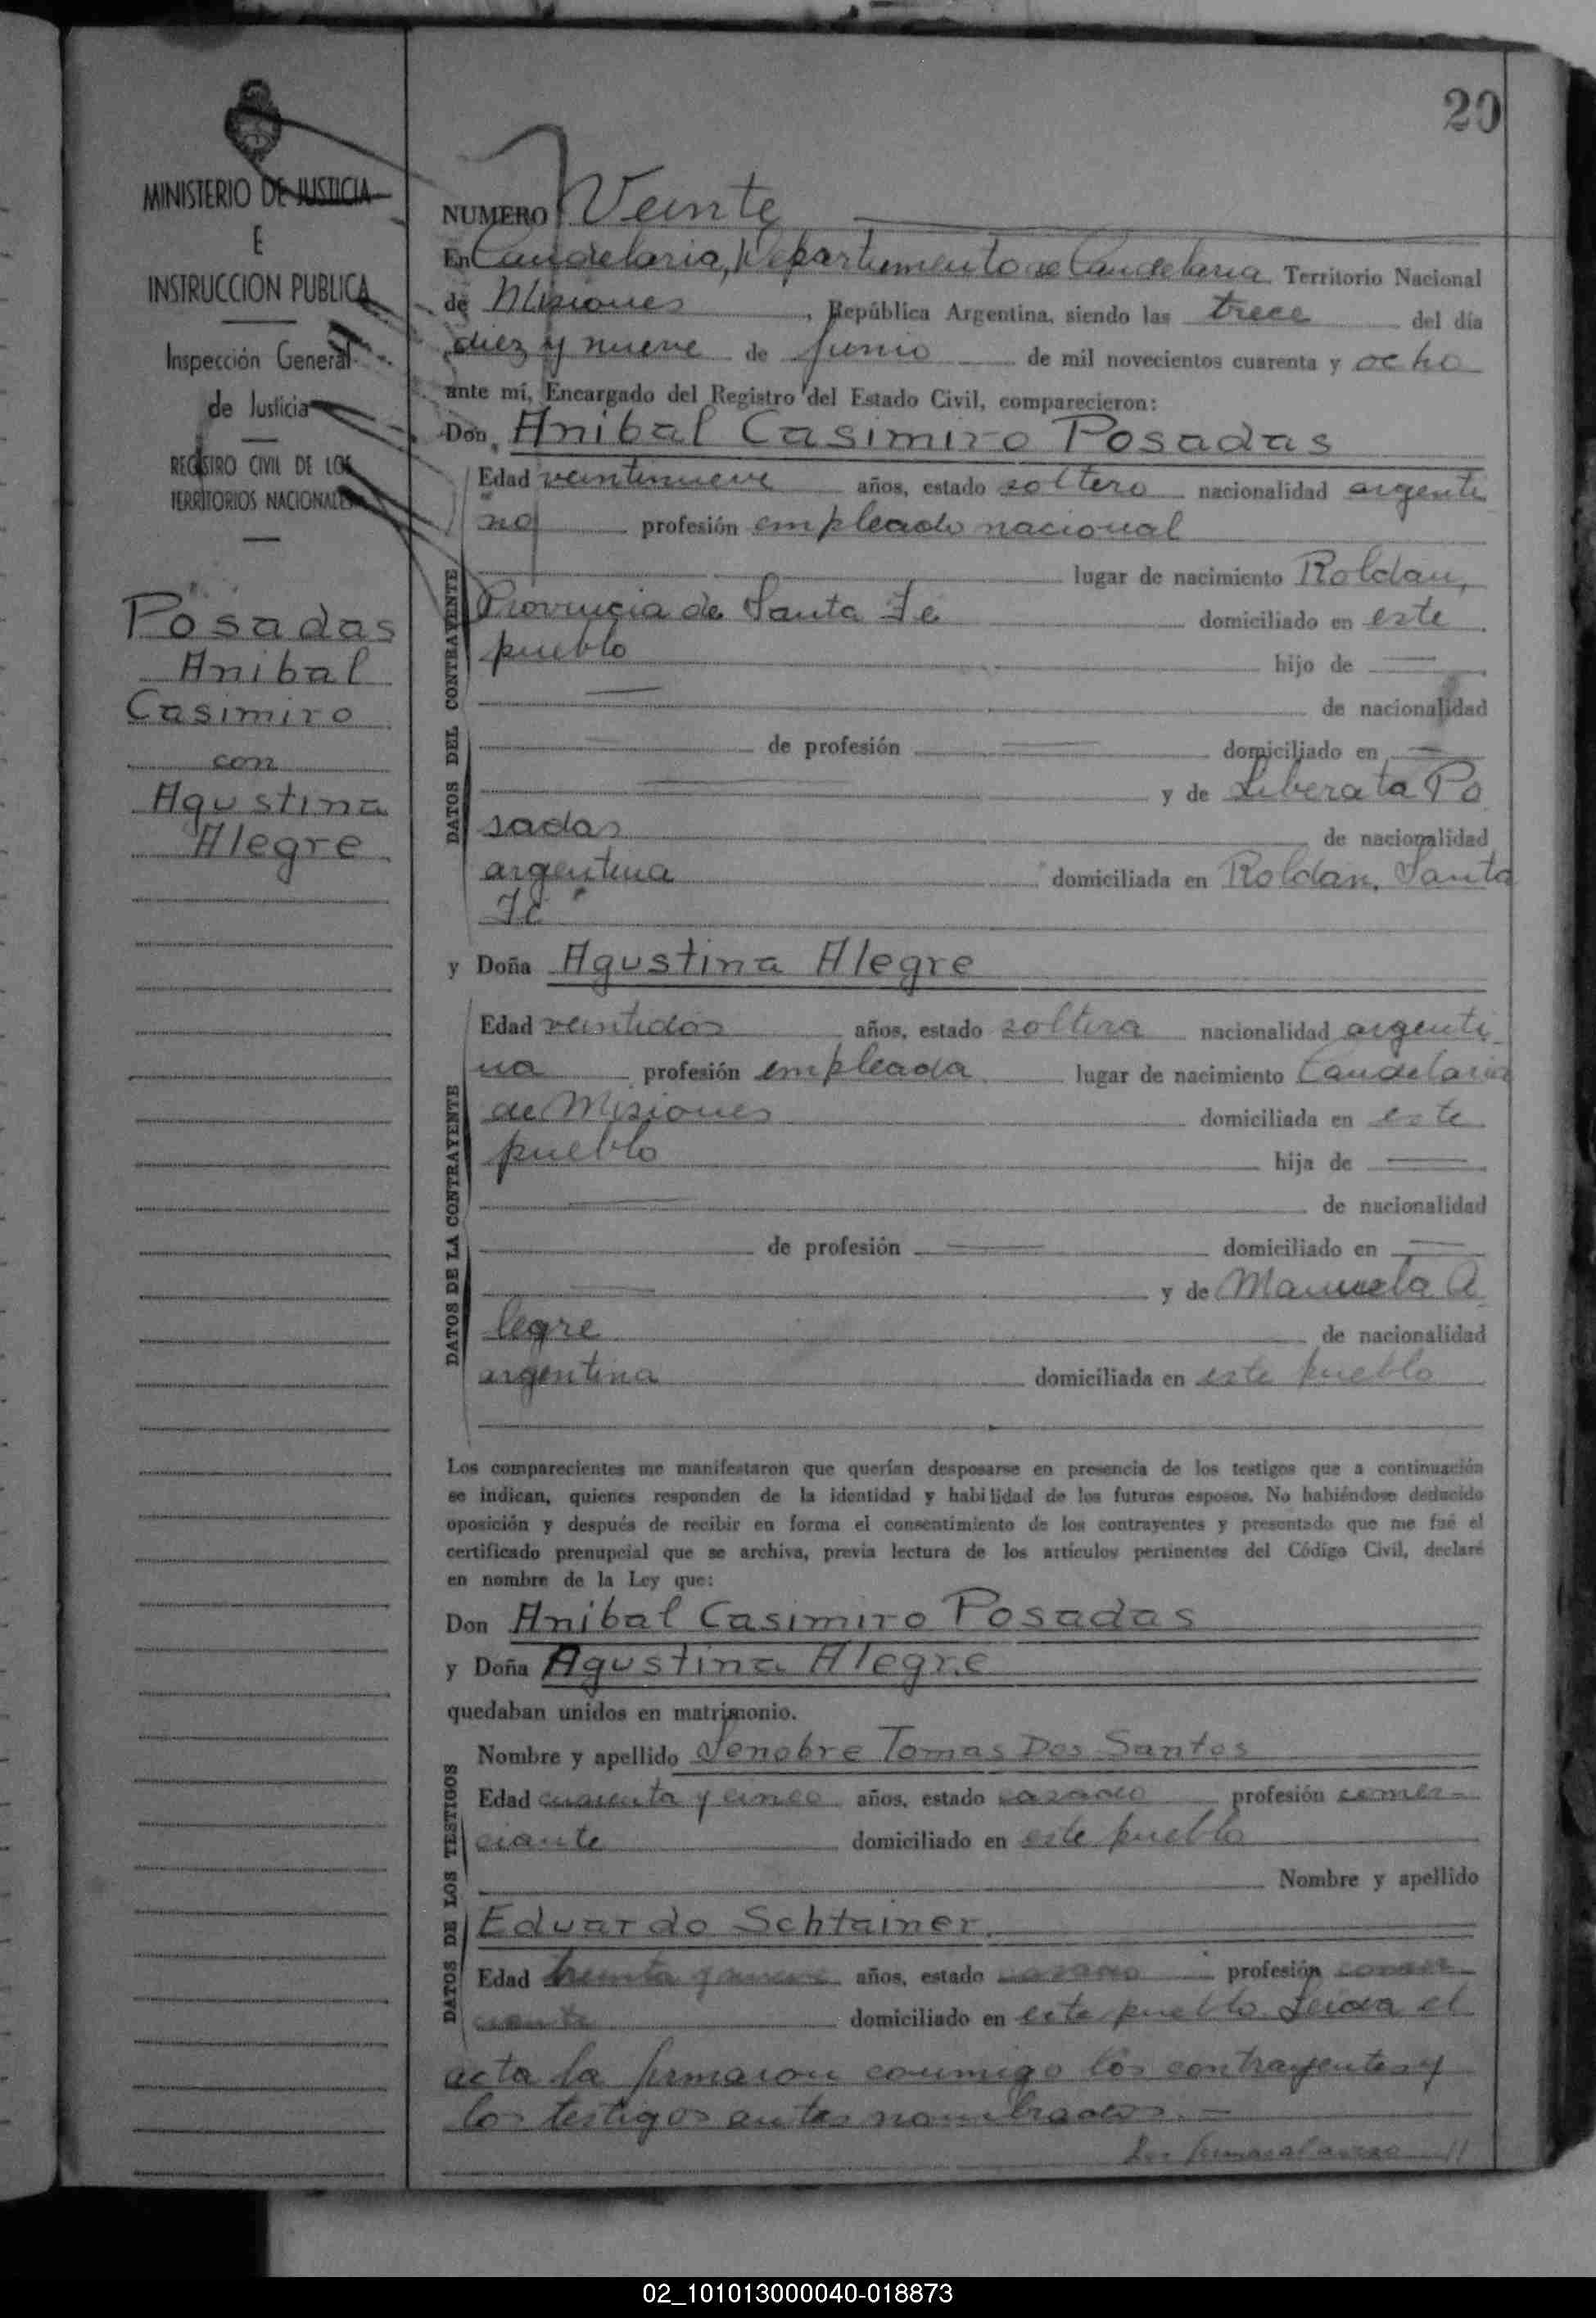 20
MINISTERIO DE JUSTICIA
E
INSTRUCCION PUBLICA
Inspección General
de Justicia
REGISTRO CIVIL DE LOS
TERRITORIOS NACIONALES
Posadas
Anibal
Casimiro
con
Agustina
Alegre
NUMERO Veinte
En Candelaria, Departamento de Candelaria Territorio Nacional
de Misiones, República Argentina, siendo las trece del día
diez y nueve de junio de mil novecientos cuarenta y ocho
ante mí, Encargado del Registro del Estado Civil, comparecieron:
Don Anibal Casimiro Posadas
DATOS DEL CONTRAYENTE
Edad veintinueve años, estado soltero nacionalidad argenti
no profesión empleado nacional
lugar de nacimiento Roldan,
Provincia de Santa Fe domiciliado en este
pueblo hijo de
de nacionalidad
de profesión domiciliado en
y de Liberata Po
sadas de nacionalidad
argentina domiciliada en Roldan, Santa
Fe
y Doña Agustina Alegre
DATOS DE LA CONTRAYENTE
Edad veintidos años, estado soltera nacionalidad argenti
na profesión empleada lugar de nacimiento Candelaria
de Misiones domiciliada en este
pueblo hija de
de nacionalidad
de profesión domiciliado en
y de Manuela A
legre de nacionalidad
argentina domiciliada en este pueblo
Los comparecientes me manifestaron que querían desposarse en presencia de los testigos que a continuación
se indican, quienes responden de la identidad y habilidad de los futuros esposos. No habiéndose deducido
oposición y después de recibir en forma el consentimiento de los contrayentes y presentado que me fué el
certificado prenupcial que se archiva, previa lectura de los artículos pertinentes del Código Civil, declaré
en nombre de la Ley que:
Don Anibal Casimiro Posadas
y Doña Agustina Alegre
quedaban unidos en matrimonio.
DATOS DE LOS TESTIGOS
Nombre y apellido Senobre Tomas Dos Santos
Edad cuarenta y cinco años, estado casado profesión comer-
ciante domiciliado en este pueblo
Nombre y apellido
Eduardo Schtainer.
Edad treinta y nueve años, estado casado profesión comer-
ciante domiciliado en este pueblo Leida el
acta la firmaron conmigo los contrayentes y
los testigos antes nombrados.-
Las firmas al dorso //
02_101013000040-018873